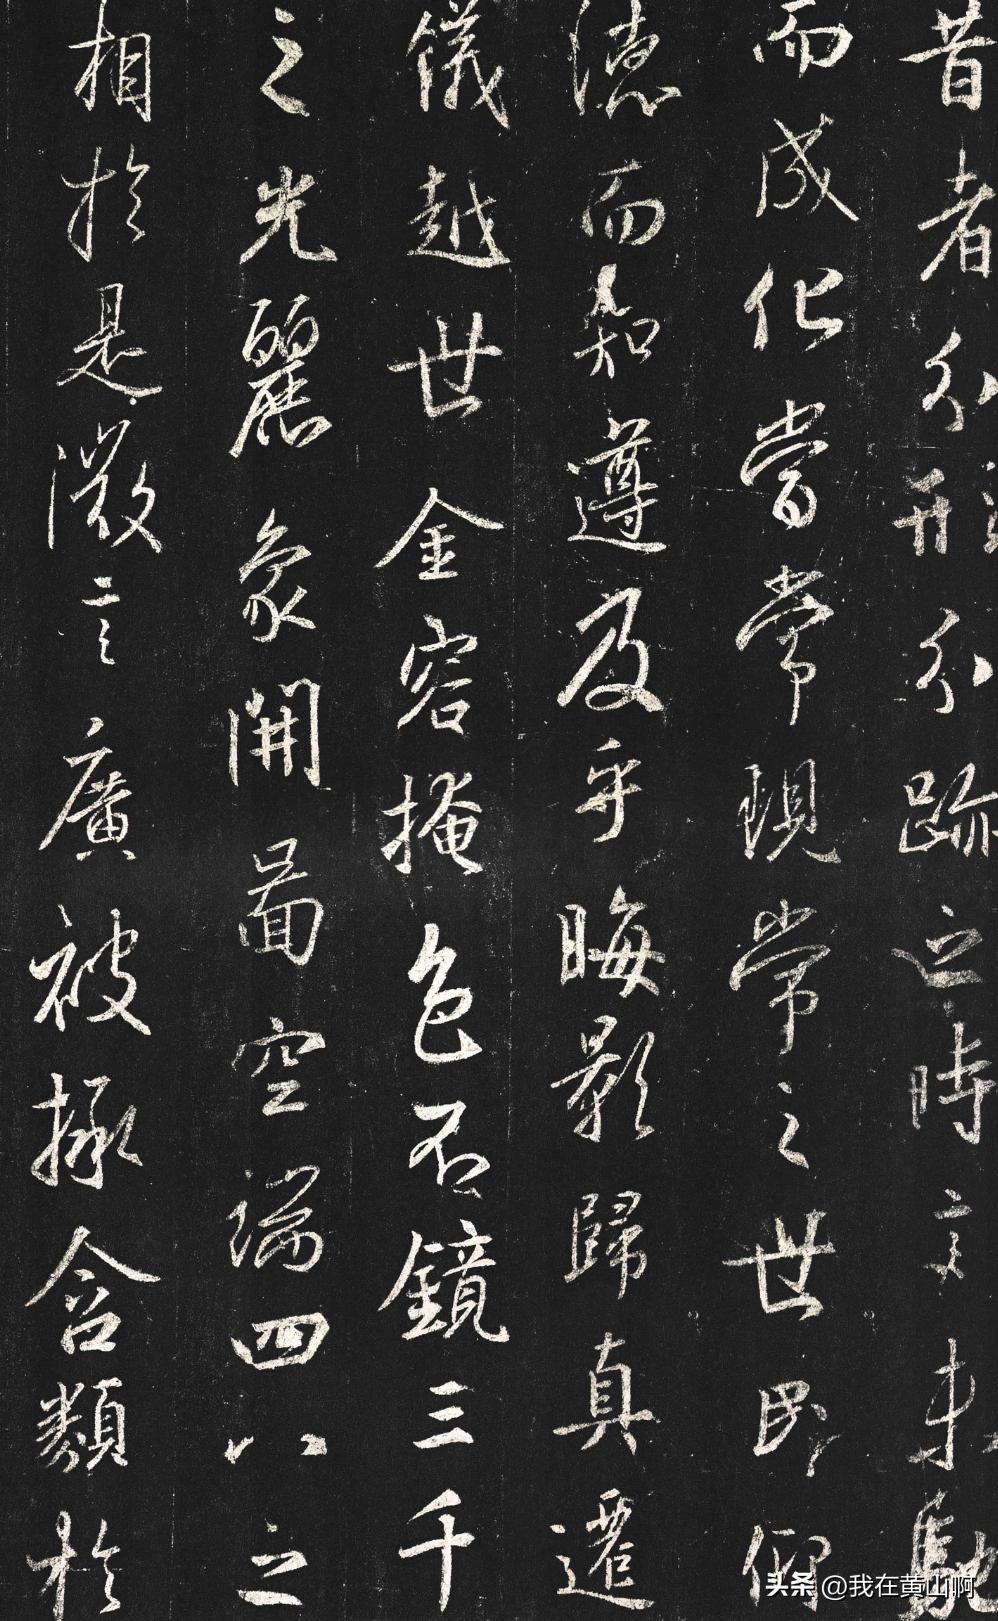 昔者分形分跡之時言未馳
而成化當常現常之世民仰
德而知遵及乎晦影歸真遷
儀越世金容掩色不鏡三千
之光麗象開圖空端四八之
相於是微言廣被拯含類於
头条 @我在黄山啊